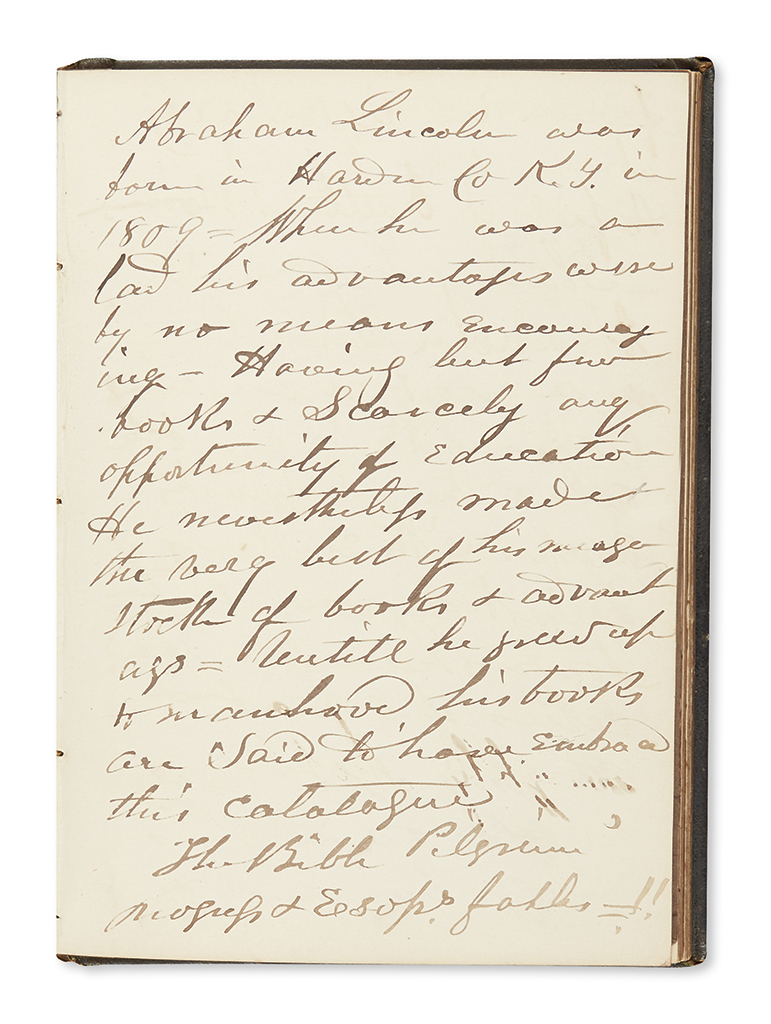 Abraham Lincoln was
born in Hardin Co K.Y. in
1809 = When he was a
lad his advantages were
by no means Encourag
ing – Having but few
books & Scarcely any
opportunity of Education
He nevertheless made
the very best of his meager
stock of books & advant
ages = Untill he grew up
to manhood his books
are "Said to" have Embraced
this catalogue
The Bible Pilgrim
progress & Esop's fables =!!